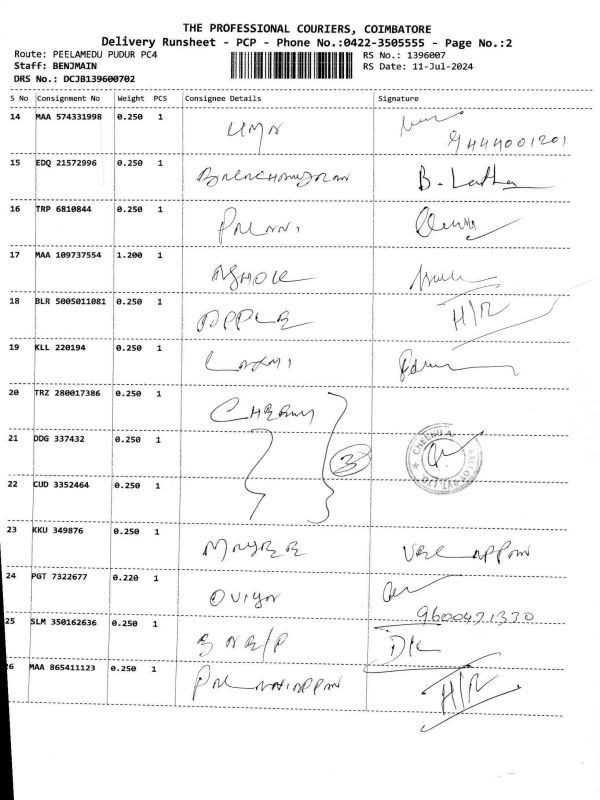 THE PROFESSIONAL COURIERS, COIMBATORE
Delivery Runsheet - PCP - Phone No.:0422-3505555 - Page No.:2
Route: PEELAMEDU PUDUR PC4 RS No.: 1396007
Staff: BENJMAIN RS Date: 11-Jul-2024
DRS No.: DCJB139600702
S No Consignment No Weight PCS Consignee Details Signature
14 MAA 574331998 0.250 1 UMA
9444001201
15 EDQ 21572996 0.250 1 B. Latha
16 TRP 6810844 0.250 1
17 MAA 109737554 1.200 1 ASHOK
18 BLR 5005011081 0.250 1 APPLE H/R
19 KLL 220194 0.250 1 Laxmi
20 TRZ 280017386 0.250 1
21 DDG 337432 0.250 1 3
22 CUD 3352464 0.250 1
23 KKU 349876 0.250 1
24 PGT 7322677 0.220 1 OUIYA
9600471330
25 SLM 350162636 0.250 1
26 MAA 865411123 0.250 1 PALANIAPPAN H/R